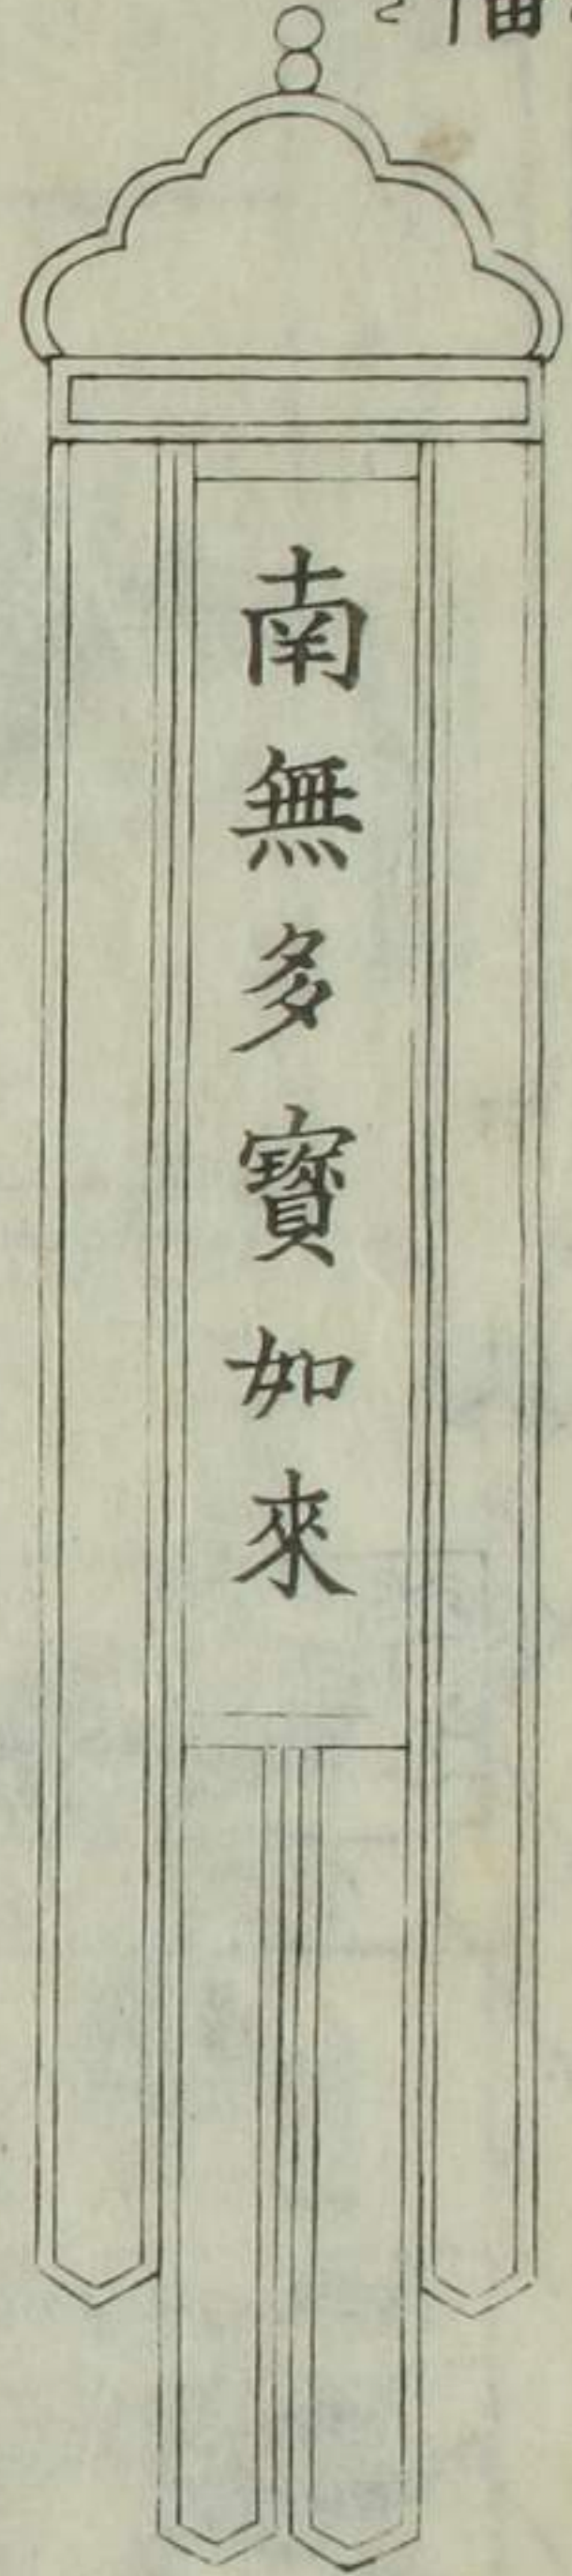 南無多寶如來